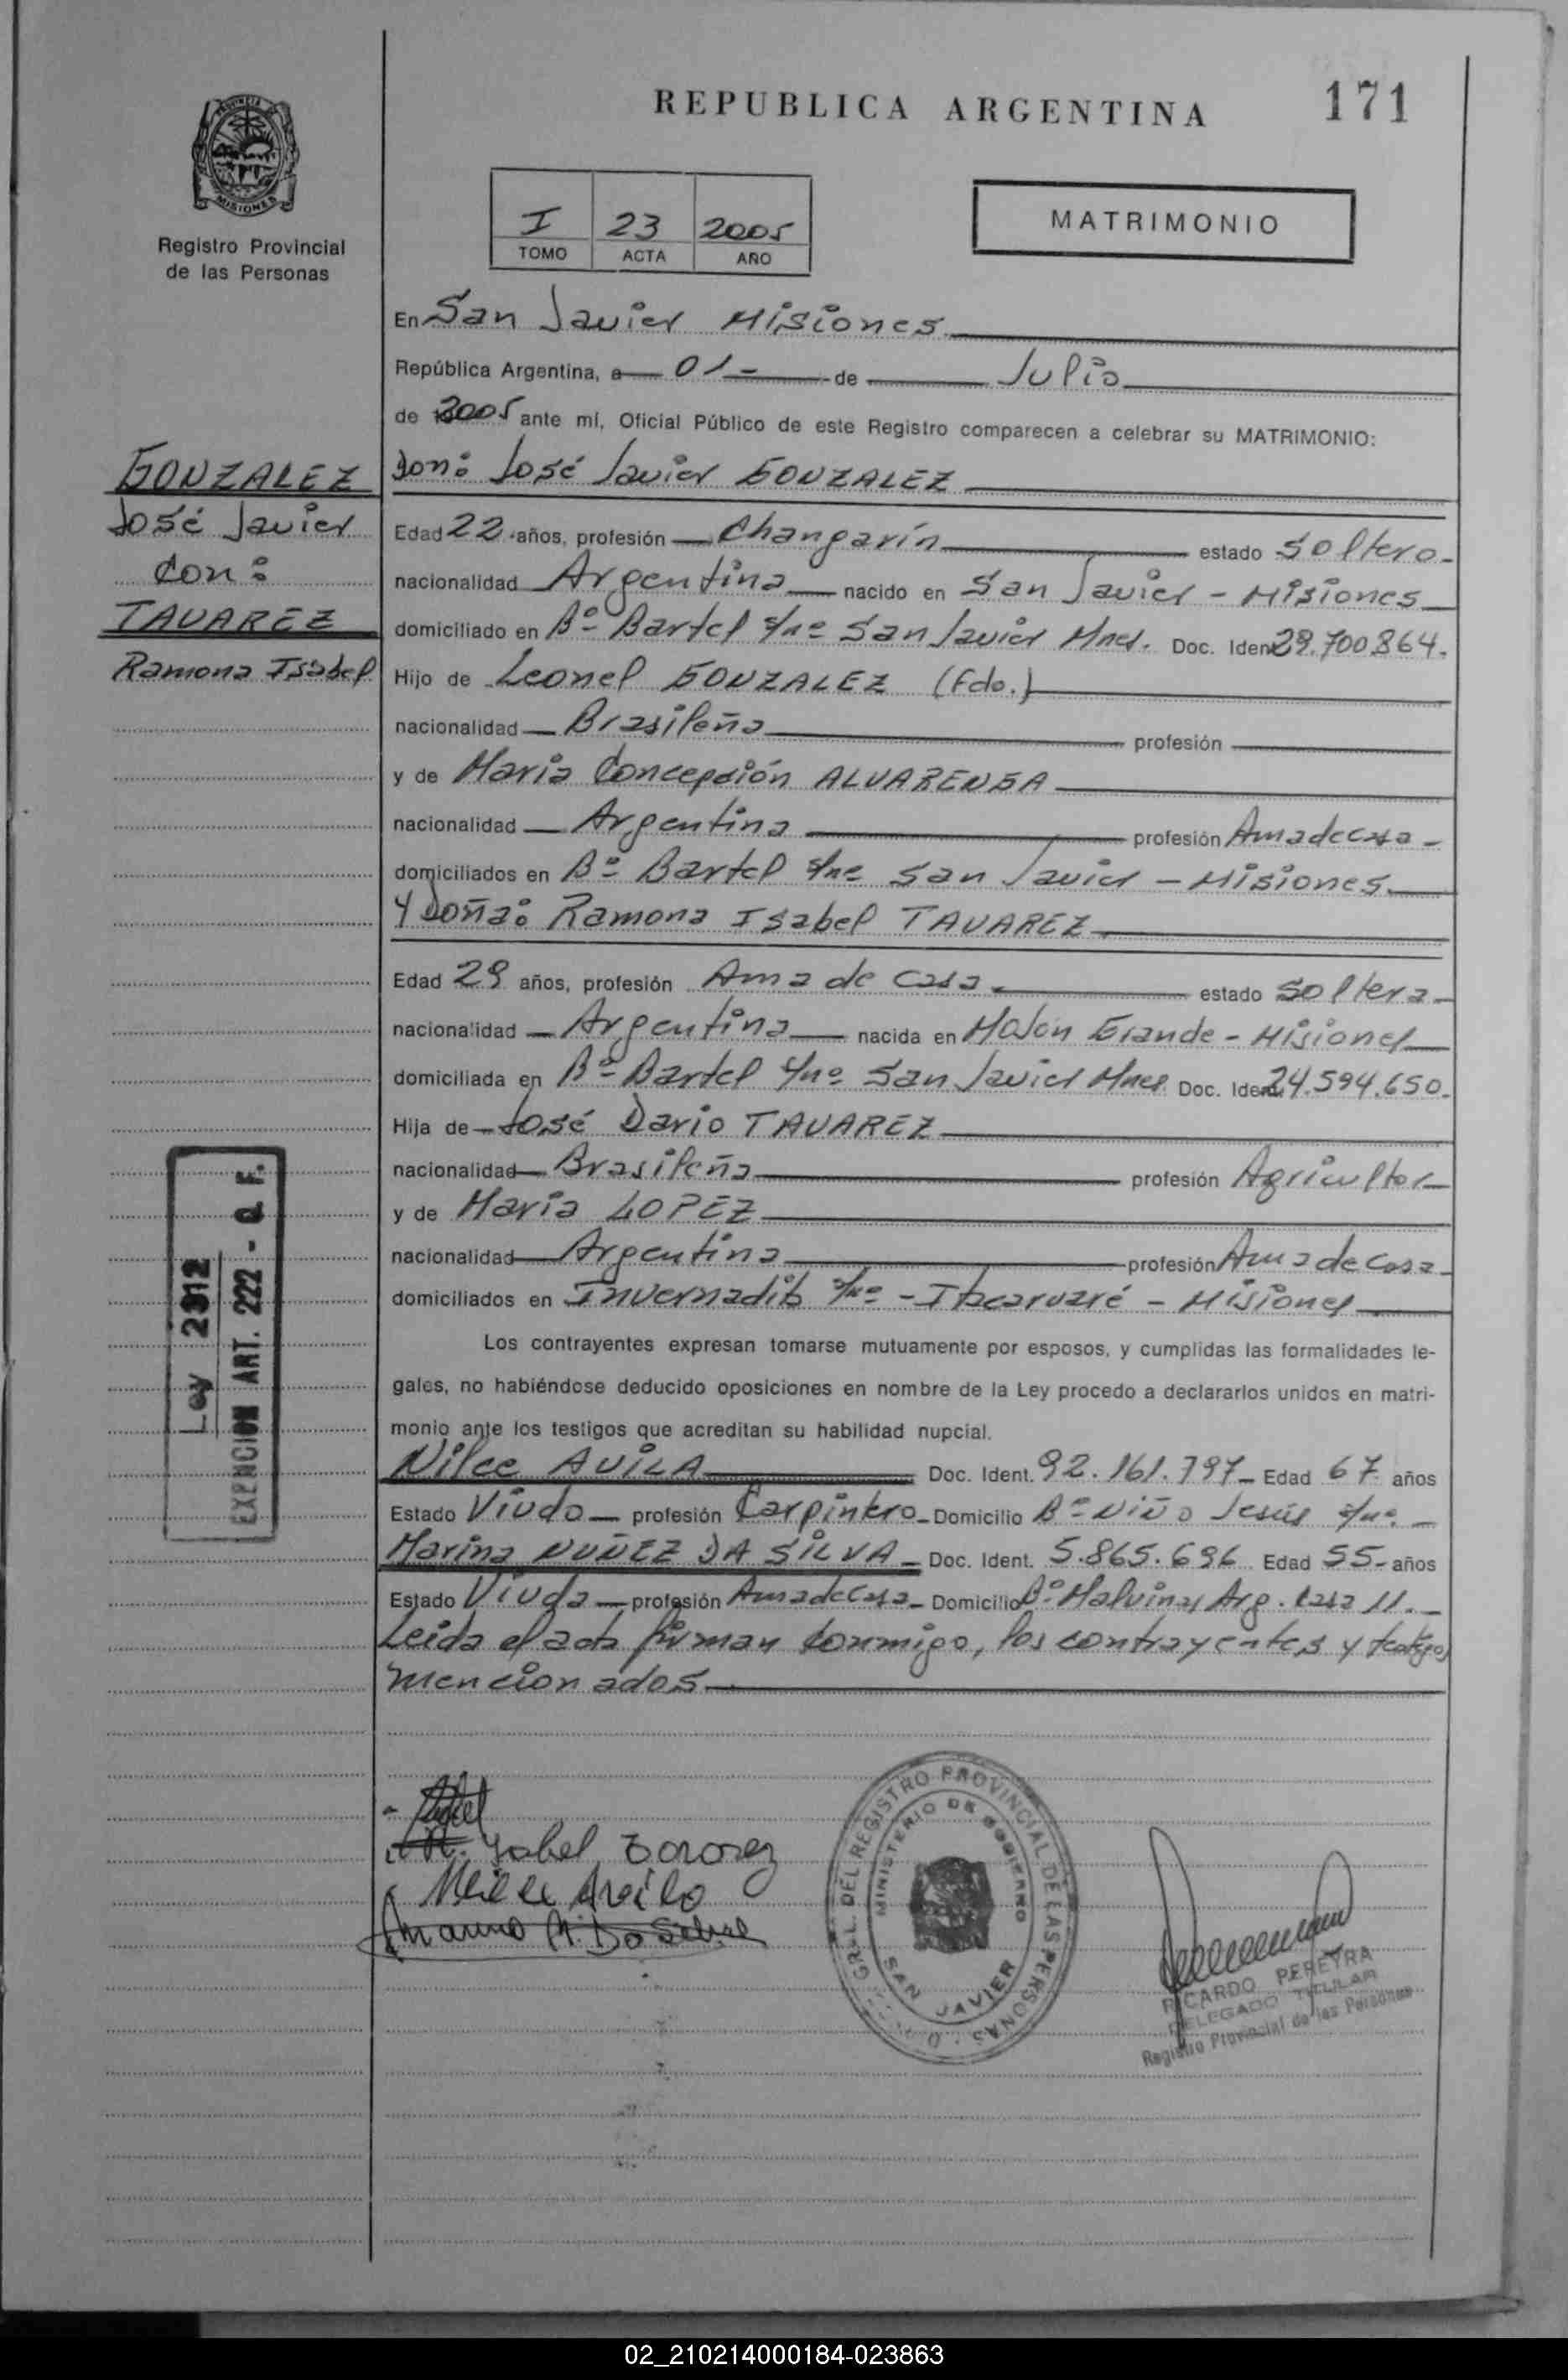 REPUBLICA ARGENTINA
171
PROVINCIA DE MISIONES
Registro Provincial
de las Personas
I 23 2005
TOMO ACTA AÑO
MATRIMONIO
En San Javier Misiones
República Argentina, a 01- de Julio
de 2005 ante mí, Oficial Público de este Registro comparecen a celebrar su MATRIMONIO:
GONZALEZ
José Javier
Con:
TAVAREZ
Ramona Isabel
Don: José Javier GONZALEZ
Edad 22 años, profesión Changarín estado Soltero
nacionalidad Argentina nacido en San Javier - Misiones
domiciliado en Bº Bartel s/nº San Javier Mnes. Doc. Iden 29.700.864.
Hijo de Leonel GONZALEZ (Fdo.)
nacionalidad Brasileña profesión
y de Maria Concepción ALVARENGA
nacionalidad Argentina profesión Ama de casa
domiciliados en Bº Bartel s/nº San Javier - Misiones
Y Doña: Ramona Isabel TAVAREZ
Edad 29 años, profesión Ama de casa estado Soltera
nacionalidad Argentina nacida en Mojón Grande - Misiones
domiciliada en Bº Bartel s/nº San Javier Mnes Doc. Ident. 24.594.650.
Hija de José Dario TAVAREZ
nacionalidad Brasileña profesión Agricultor
y de Maria LOPEZ
nacionalidad Argentina profesión Ama de Casa
domiciliados en s/nº - Itacaruaré - Misiones
Los contrayentes expresan tomarse mutuamente por esposos, y cumplidas las formalidades le-
gales, no habiéndose deducido oposiciones en nombre de la Ley procedo a declararlos unidos en matri-
monio ante los testigos que acreditan su habilidad nupcial.
Nilce AVILA Doc. Ident. 92.161.797 Edad 67 años
Estado Viudo profesión Carpintero Domicilio Bº Niño Jesús s/nº.
Marina NUÑEZ DA SILVA Doc. Ident. 5.865.696 Edad 55 años
Estado Viuda profesión Ama de Casa Domicilio Bº Malvinas Arg. Casa 11.
Leída el acta firman conmigo, los contrayentes y testigos
mencionados
Ley 2312
EXPENCION ART. 222 - Q. F.
GRAL. DEL REGISTRO PROVINCIAL DE LAS PERSONAS
MINISTERIO DE GOBIERNO
SAN JAVIER
RICARDO PEREYRA
DELEGADO TITULAR
Registro Provincial de las Personas
02_210214000184-023863